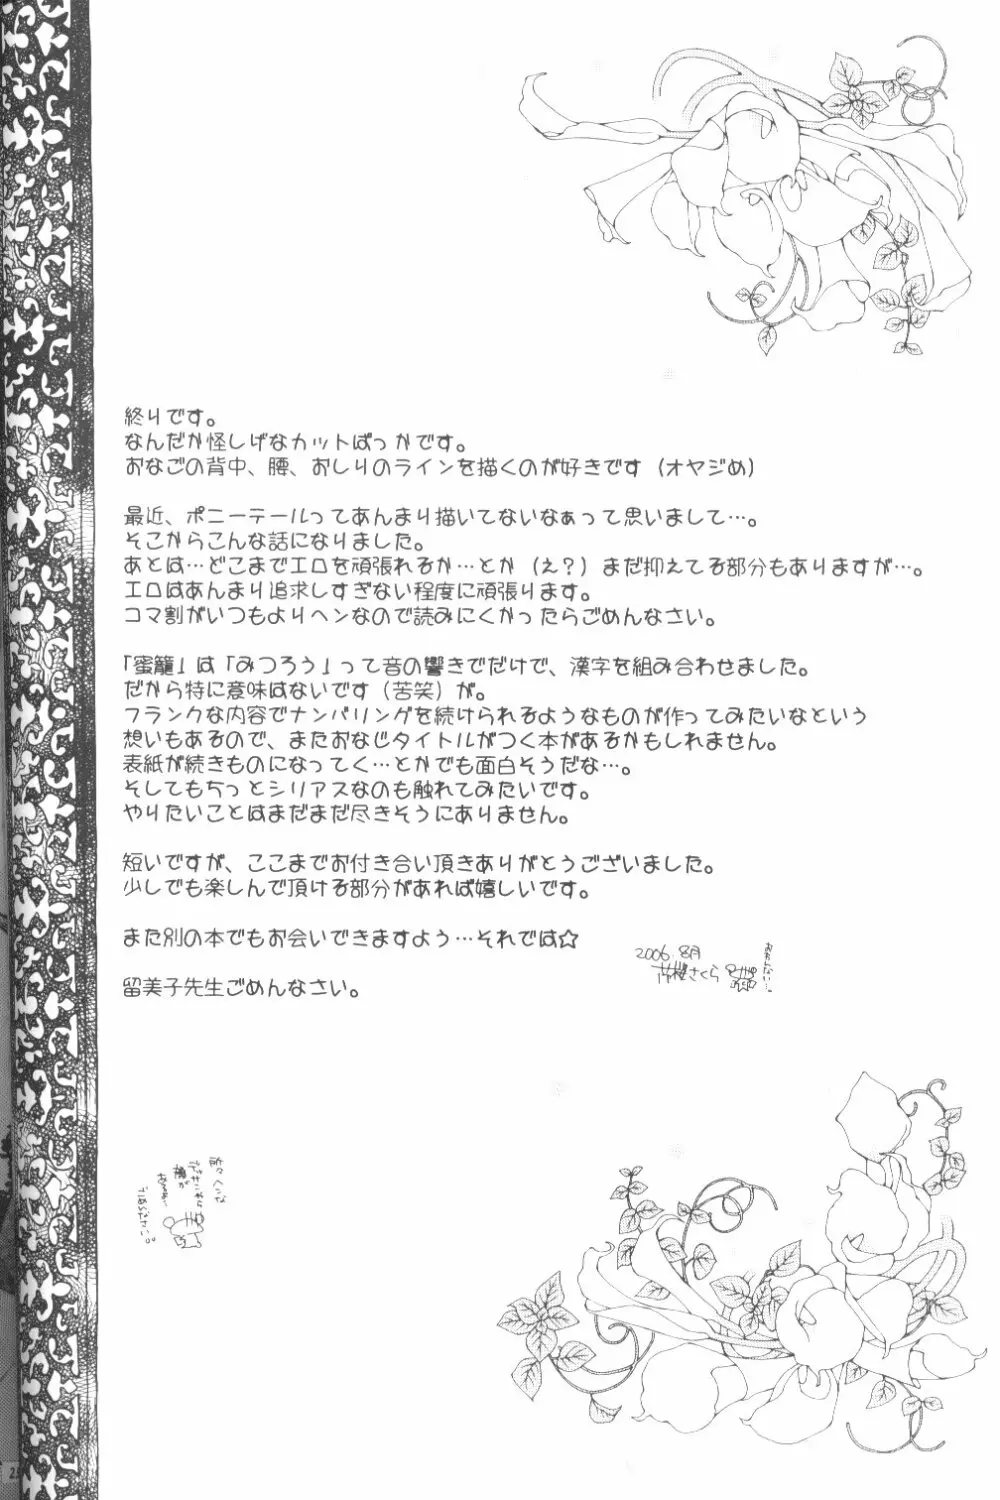 終りです。
なんだか怪しげなカットばっかです。
おなごの背中、腰、おしりのラインを描くのが好きです（オヤジめ）
最近、ポニーテールってあんまり描いてないなぁって思いまして…。
そこからこんな話になりました。
あとは…どこまでエロを頑張れるか…とか（え？）まだ抑えてる部分もありますが…。
エロはあんまり追求しすぎない程度に頑張ります。
コマ割がいつもよりヘンなので読みにくかったらごめんなさい。
「蜜籠」は「みつろう」って音の響きでだけで、漢字を組み合わせました。
だから特に意味はないです（苦笑）が。
フランクな内容でナンバリングを続けられるようなものが作ってみたいなという
想いもあるので、またおなじタイトルがつく本があるかもしれません。
表紙が続きものになってく…とかでも面白そうだな…。
そしてもちっとシリアスなのも触れてみたいです。
やりたいことはまだまだ尽きそうにありません。
短いですが、ここまでお付き合い頂きありがとうございました。
少しでも楽しんで頂ける部分があれば嬉しいです。
また別の本でもお会いできますよう…それでは☆
2006.8月
さくら
留美子先生ごめんなさい。
所々ヘンな
ごめんなさい。